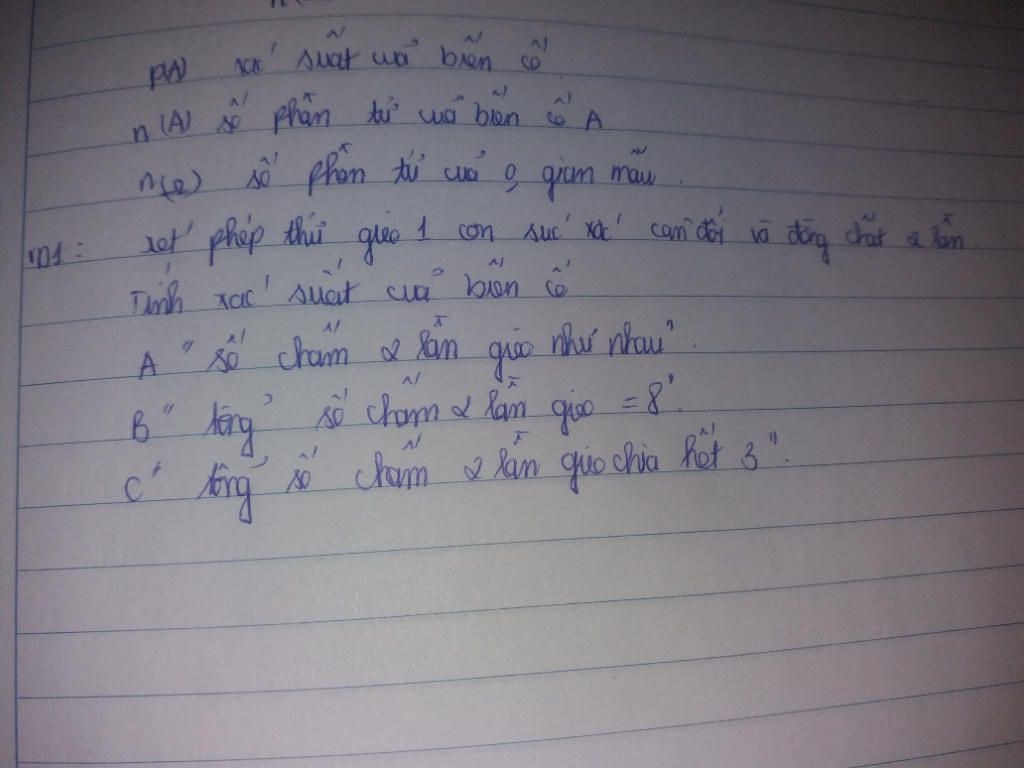 P(A) xác suất của biến cố
n(A) số phần tử của biến cố A
n(Ω) số phần tử của o gian mẫu.
VD1: xét phép thử gieo 1 con súc xắc cân đối và đồng chất 2 lần.
Tính xác suất của biến cố
A "số chấm 2 lần gieo như nhau".
B "tổng số chấm 2 lần gieo = 8".
C "tổng số chấm 2 lần gieo chia hết 3".